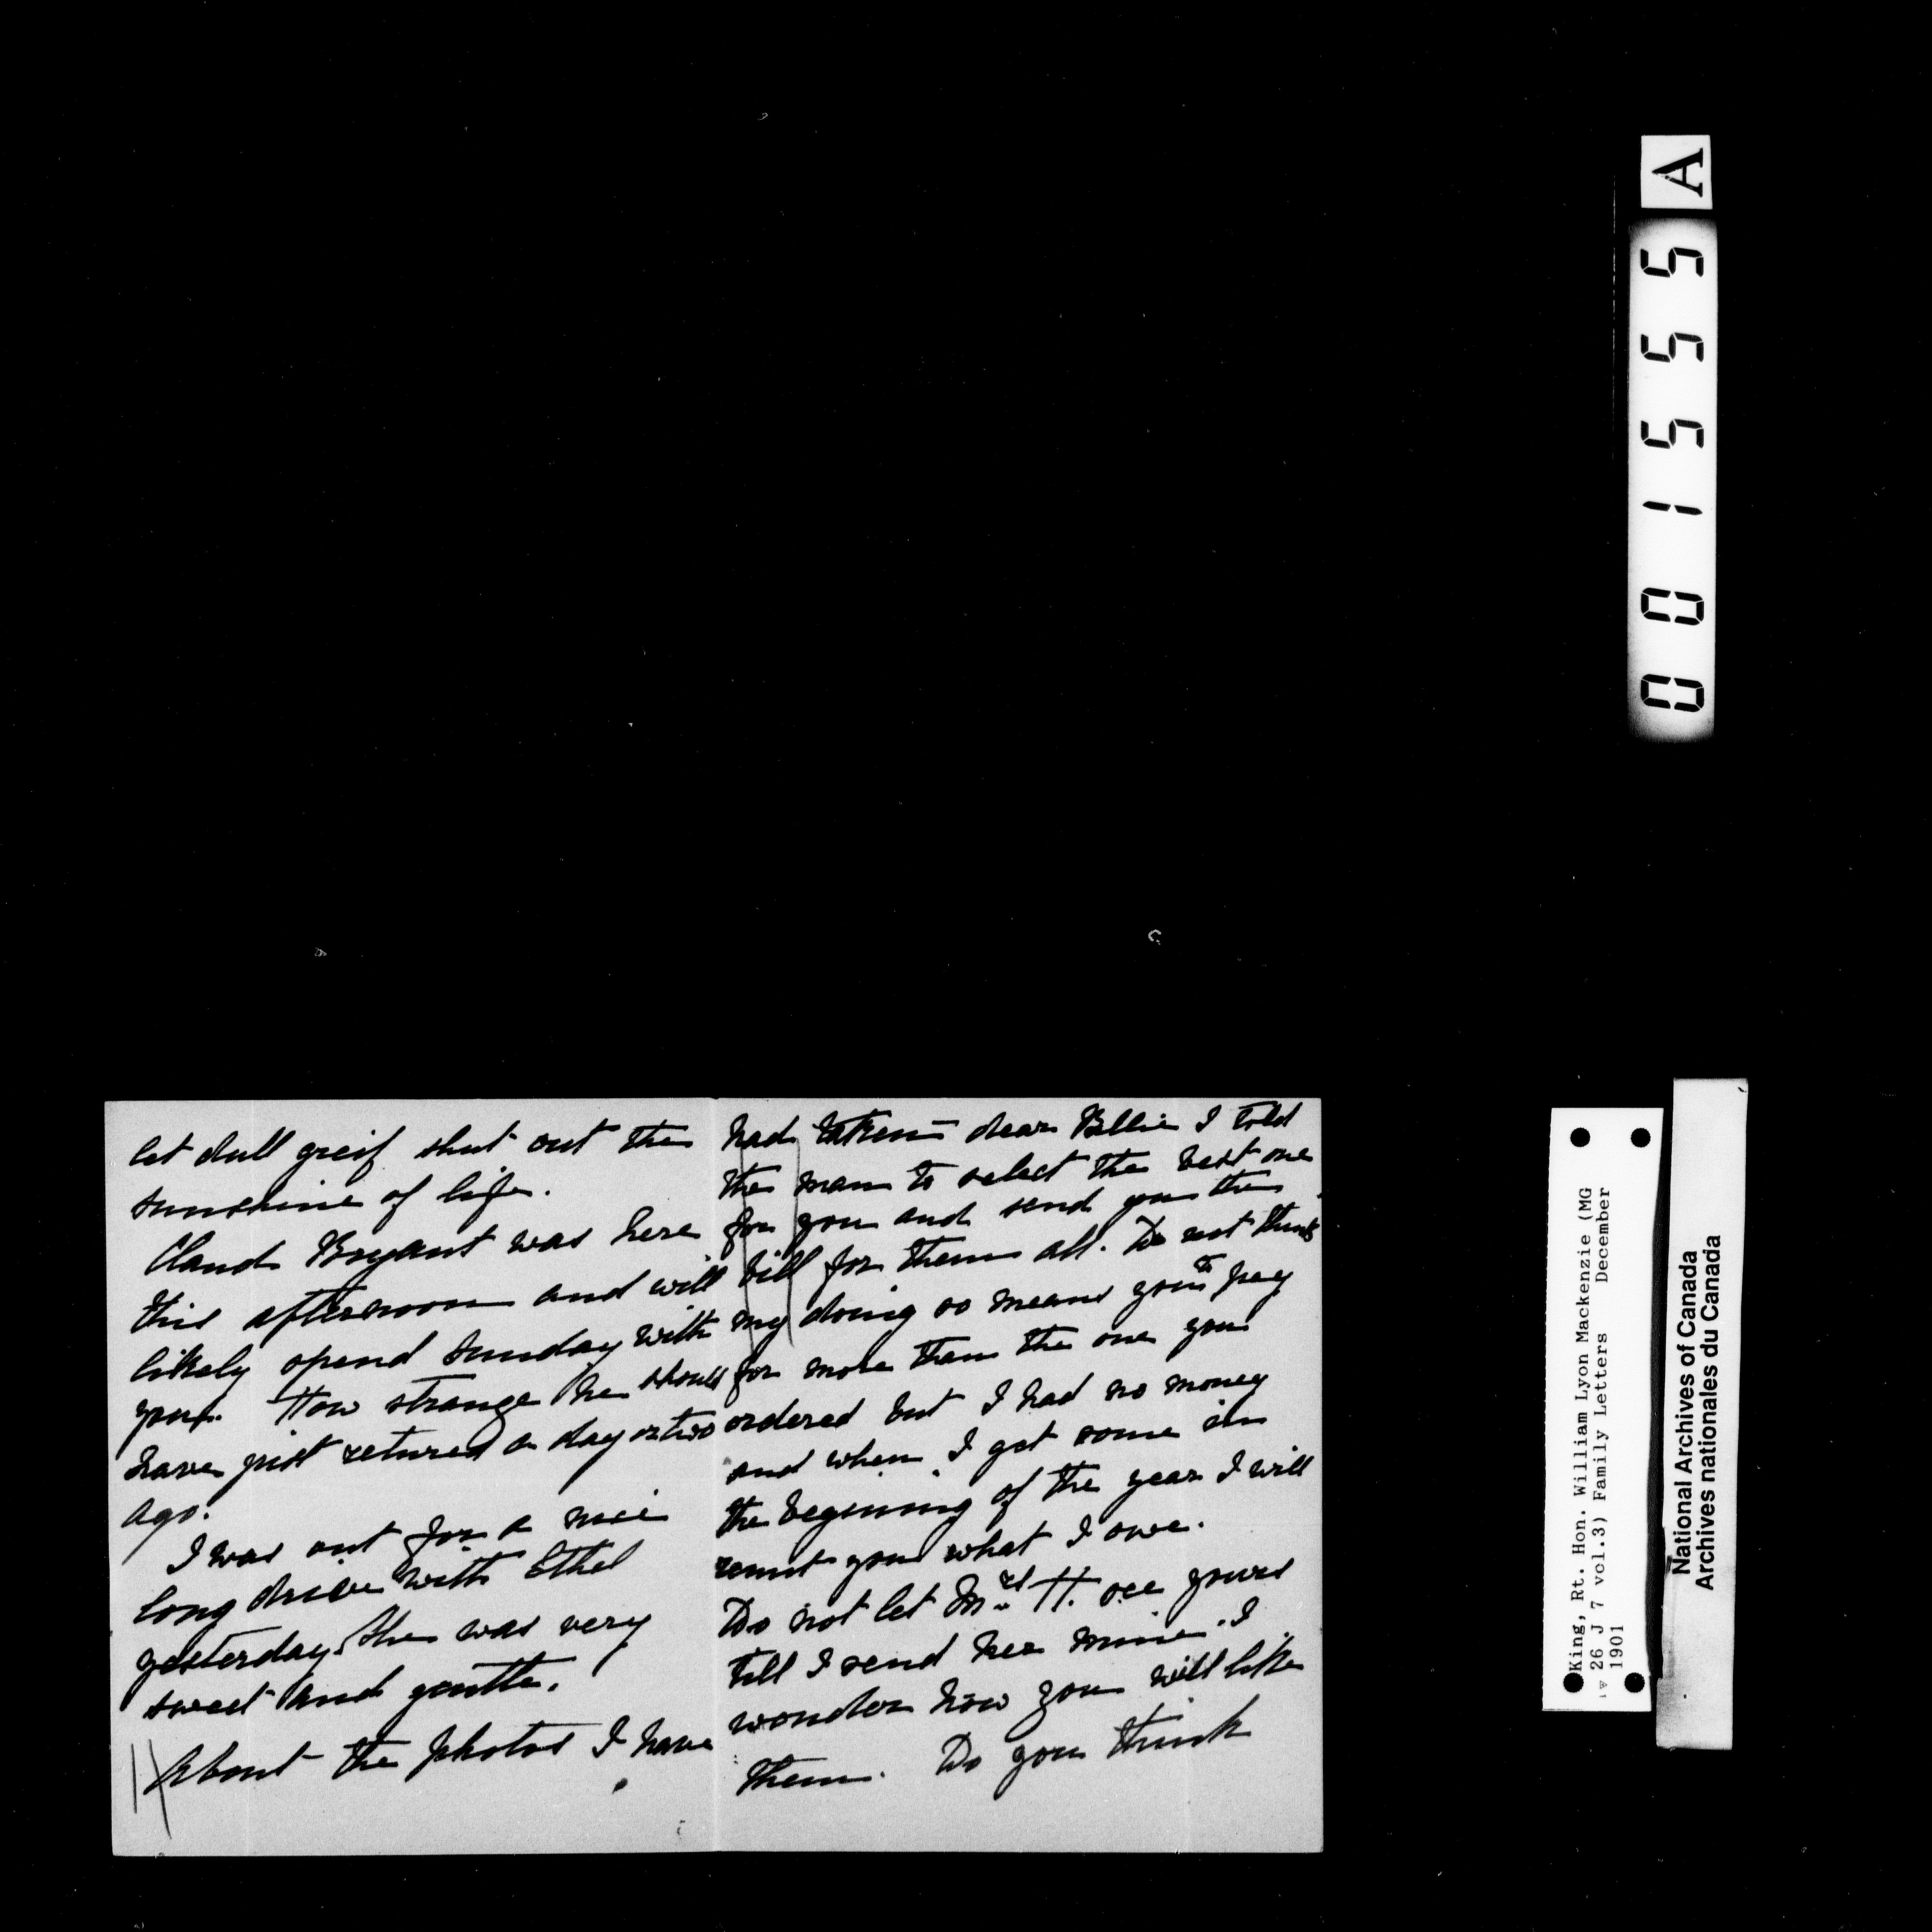 let dull greif shut out the
sunshine of life.
Claud Bryant was here
this afternoon and will
likely spend Sunday with
you. How strange he should
have just retured a day or two
ago.
I was out for a nice
long drive with Ethel
yesterday. She was very
sweet and gentle.
About the photos I have
had taken dear Billie I told
the man to select the best one
for you and send you the
bill for them all. Do not think
my doing so means you to pay
for more than the one you
ordered but I had no money
and when I get some in
the beginning of the year I will
remit you what I owe.
Do not let Mrs H. see yours
till I send her mine. I
wonder how you will like
them. Do you think
A
001555
King, Rt. Hon. William Lyon Mackenzie (MG
26 J 7 vol.3) Family Letters December
1901
National Archives of Canada
Archives nationales du Canada